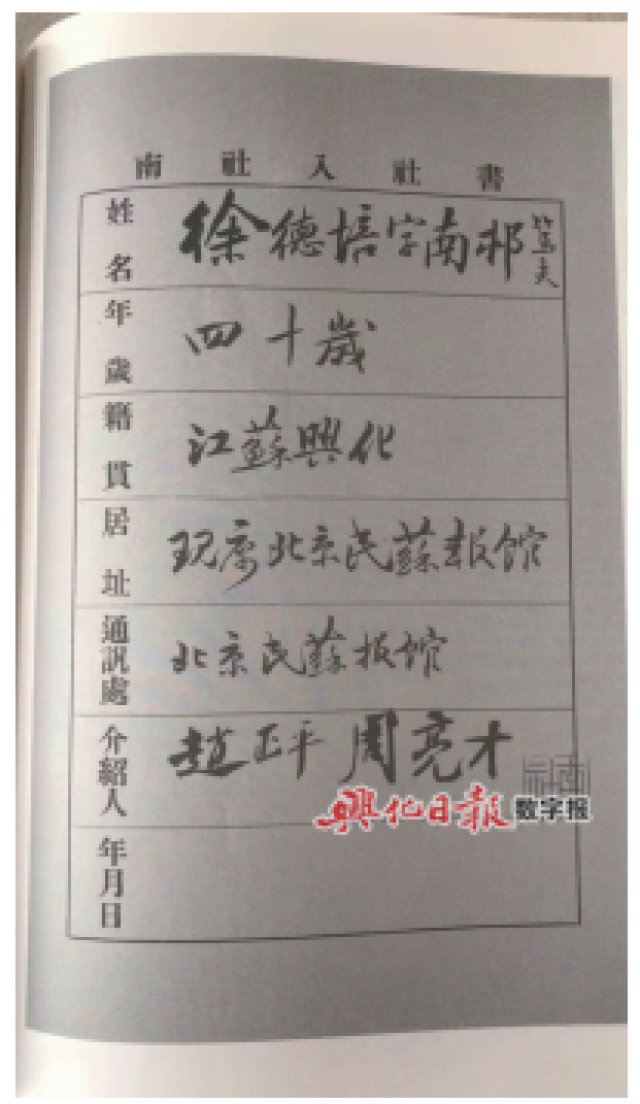 南社入社書
姓名 徐德培字南邨篤夫
年歲 四十歲
籍貫 江蘇興化
居址 現寓北京民蘇報館
通訊處 北京民蘇報館
介紹人 趙正平 周亮才
年月日
興化日報 数字报